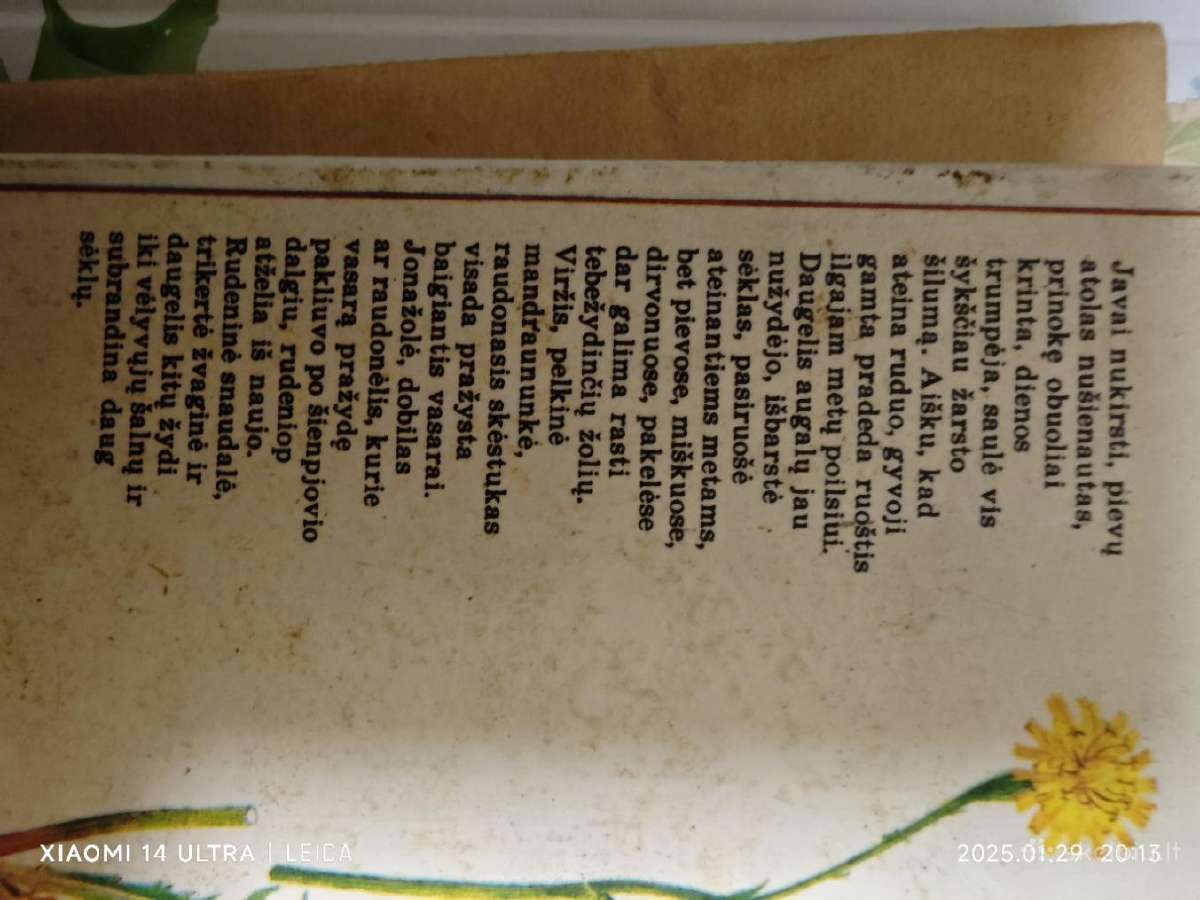 Javai nukirsti, pievų
atolas nušienautas,
prinokę obuoliai
krinta, dienos
trumpėja, saulė vis
šykščiau žarsto
šilumą. Aišku, kad
ateina ruduo, gyvoji
gamta pradeda ruoštis
ilgajam metų poilsiui.
Daugelis augalų jau
nužydėjo, išbarstė
sėklas, pasiruošė
ateinantiems metams,
bet pievose, miškuose,
dirvonuose, pakelėse
dar galima rasti
tebežydinčių žolių.
Viržis, pelkinė
mandraununkė,
raudonasis skėstukas
visada pražysta
baigiantis vasarai.
Jonažolė, dobilas
ar raudonėlis, kurie
vasarą pražydę
pakliuvo po šienpjovio
dalgiu, rudeniop
atželia iš naujo.
Rudeninė snaudalė,
trikertė žvaginė ir
daugelis kitų žydi
iki vėlyvųjų šalnų ir
subrandina daug
sėklų.
XIAOMI 14 ULTRA | LEICA
2025.01.29 20:13